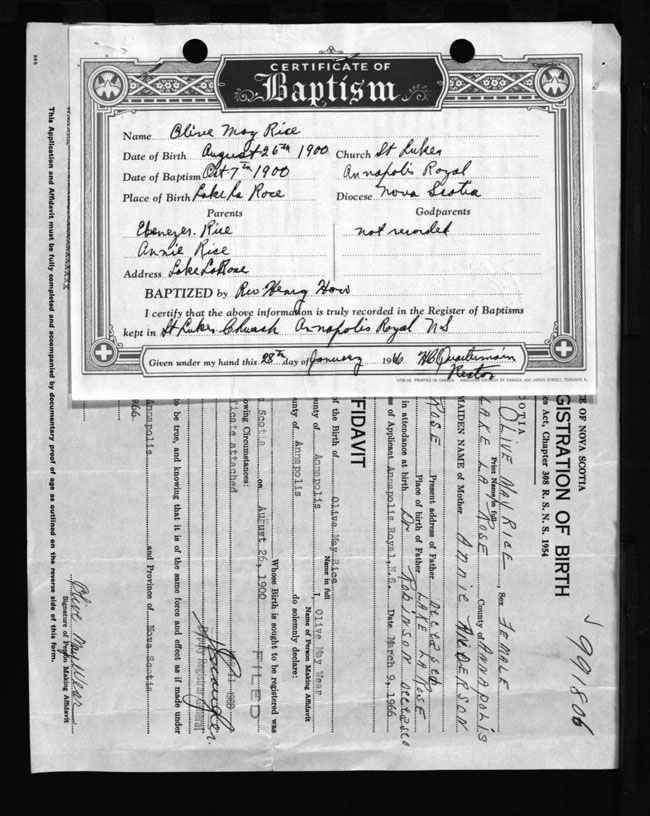 CERTIFICATE OF
Baptism
Name Olive May Rice
Date of Birth August 26th 1900 Church St Lukes
Date of Baptism Oct 7th 1900 Annapolis Royal
Place of Birth Lake La Rose Diocese Nova Scotia
Parents Godparents
Ebenezer Rice not recorded
Annie Rice
Address Lake LaRose
BAPTIZED by Rev Henry How
I certify that the above information is truly recorded in the Register of Baptisms
kept in St Lukes Church Annapolis Royal N S
Given under my hand this 28th day of January 1966
Rector
PRINTED IN CANADA ANGLICAN CHURCH OF CANADA, 600 JARVIS STREET, TORONTO 5.
991806
CE OF NOVA SCOTIA
GISTRATION OF BIRTH
es Act, Chapter 308 R. S. N. S. 1954
COTIA
OLIVE MAY RICE, Sex FEMALE
Print Name in full
LAKE LA ROSE County of ANNAPOLIS
MAIDEN NAME of Mother ANNIE ANDERSON
ROSE Present address of Father DECEASED
Place of birth of Father LAKE LA ROSE
in attendance at birth DR ROBINSON
ss of Applicant Annapolis Royal, N.S. Date March 9, 1966
FFIDAVIT
of the Birth of Olive May Rice
Name in full
unty of Annapolis I, Olive May Wear
Name of Person Making Affidavit
unty of Annapolis do solemnly declare:
Whose Birth is sought to be registered was
Scotia on August 26, 1900
owing Circumstances:
ficate attached
FILED
Deputy Registrar General
to be true, and knowing that it is of the same force and effect as if made under
Annapolis and Province of Nova Scotia
966
Olive May Wear
Signature of Person Making Affidavit
This Application and Affidavit must be fully completed and accompanied by documentary proof of age as outlined on the reverse side of this form.